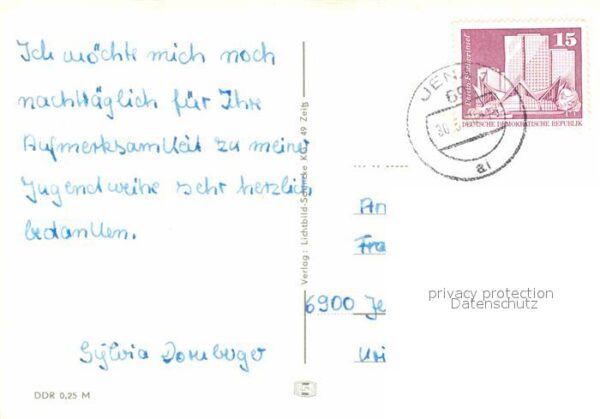 Ich möchte mich noch
nachträglich für Ihre
Aufmerksamkeit zu meiner
Jugendweihe sehr herzlich
bedanken.
Sylvia Dornberger
DDR 0,25 M
Verlag: Lichtbild-Schincke KG, 49 Zeitz
15
Berlin Fischerinsel
DEUTSCHE DEMOKRATISCHE REPUBLIK
JENA 1
69
ai
An
6900 Je
privacy protection
Datenschutz